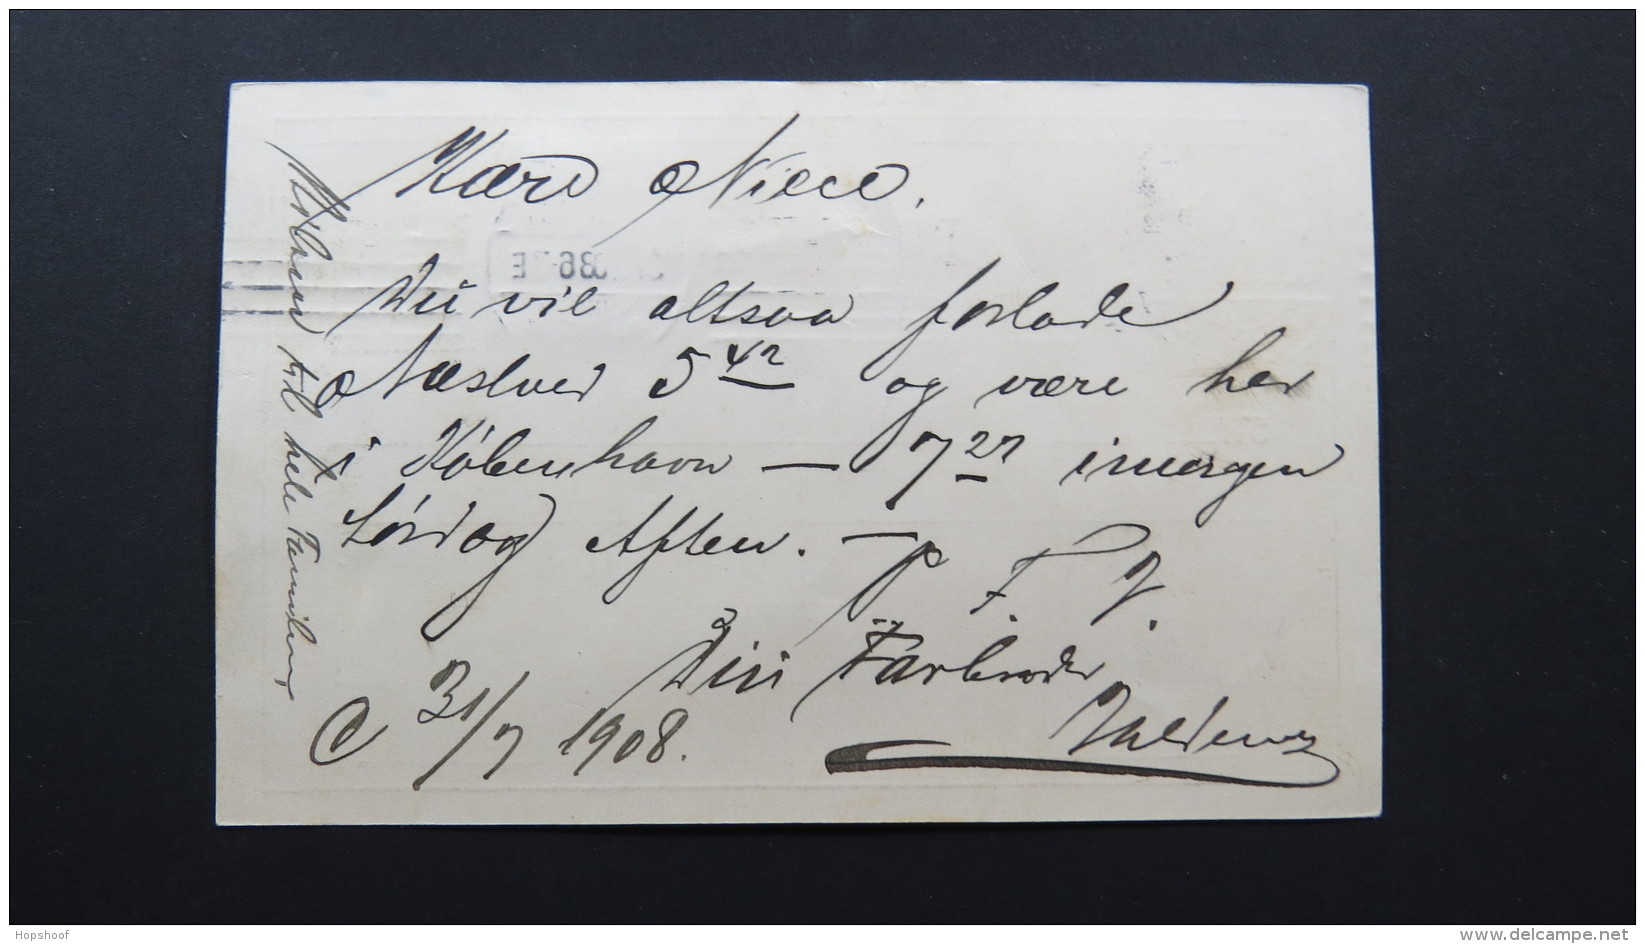 Kære Niece.
Du vil altsaa forlade
Næstved 5 42 og være her
i København — 7 27 imorgen
Lørdag Aften. —
P. F. V.
Din Farbroder
Valdemar
C 31/7 1908.
Hilsen til hele Familien
Hopshoof
delcampe.net